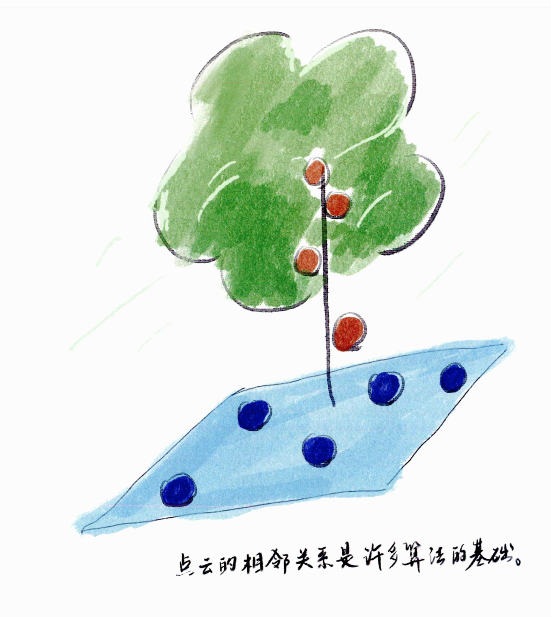 点云的相邻关系是许多算法的基础。